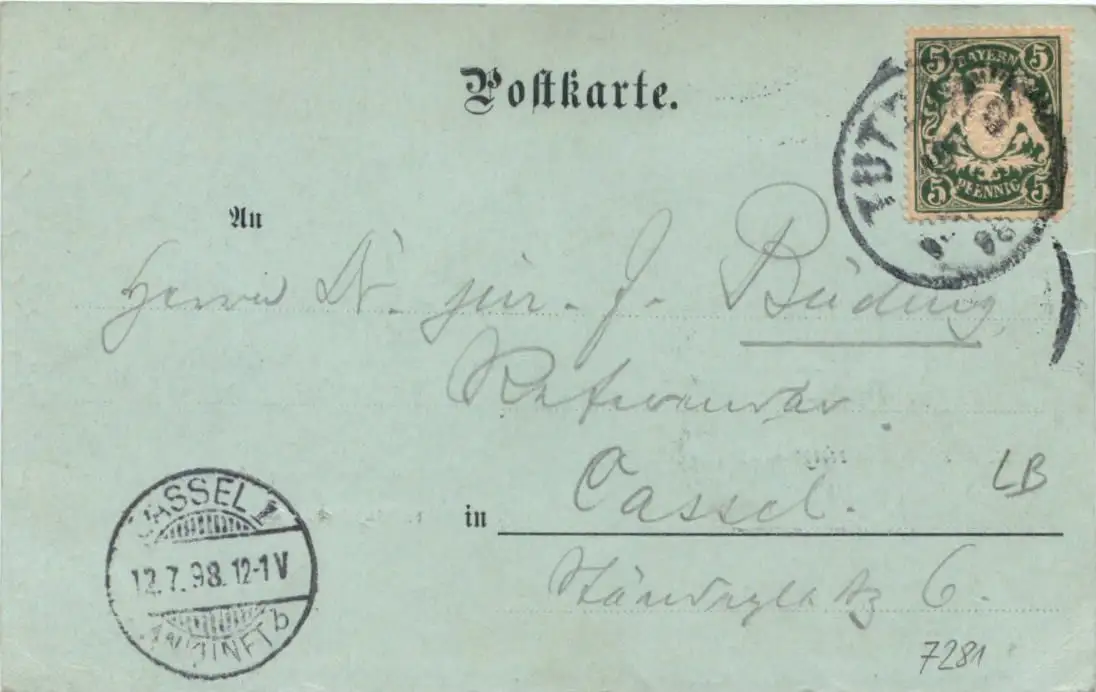 Postkarte.
5 BAYERN 5
5 PFENNIG 5
TUTZ
98
An
Herrn Dr. jur. J. Büding
Referendar
in Cassel.
Ständeplatz 6.
LB
CASSEL 1
12.7.98.12-1V
b
7281